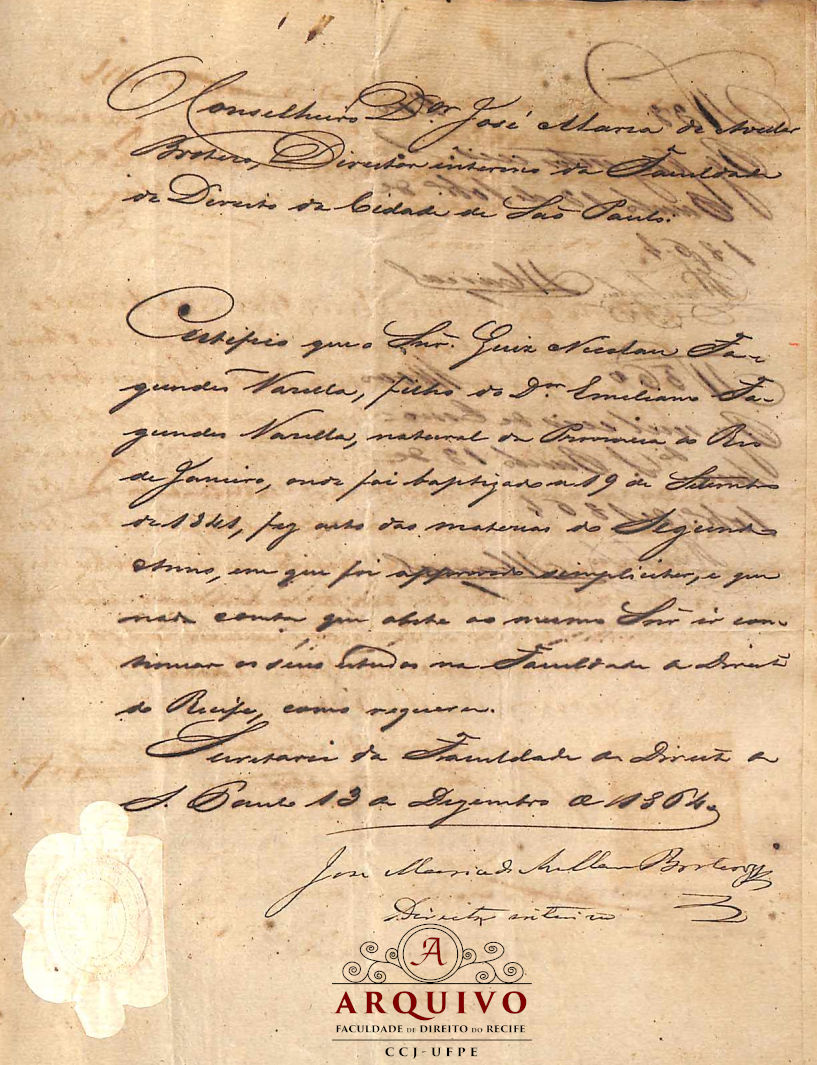 Conselheiro Dor José Maria de Avellar
Brotero, Director interino da Faculdade
de Direito da Cidade de São Paulo.
Certifico que o Snr. Luiz Nicolau Fa-
gundes Varella, filho do Dor Emiliano Fa-
gundes Varella, natural da Provincia do Rio
de Janeiro, onde foi baptizado a 19 de Setembro
de 1841, fez acto das materias do Segundo
Anno, em que foi approvado simpliciter, e que
nada consta que obste ao mesmo Snr ir con-
tinuar os seus estudos na Faculdade de Direito
do Recife, como requereu.
Secretaria da Faculdade de Direito de
S. Paulo 13 de Dezembro de 1864.
José Maria de Avellar Brotero
Director interino
A
ARQUIVO
FACULDADE DE DIREITO DO RECIFE
CCJ-UFPE